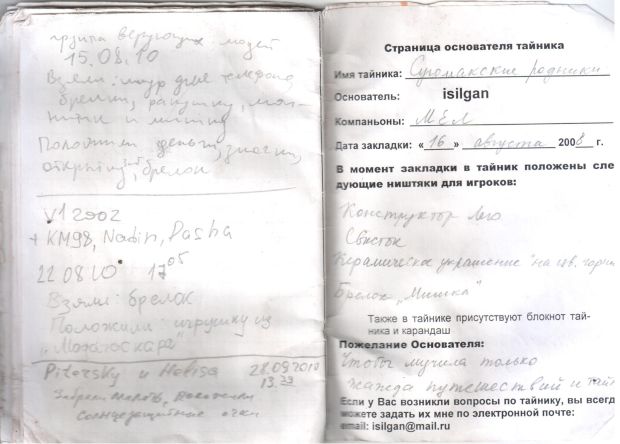 группа верующих людей
15.08.10
Взяли: шнур для телефона,
брелки, ракушку,
и мишку
Положили деньги, значки,
открытку, брелок
V12002
+ КМ98, Nadin, Pasha
22 08 10 17 05
Взяли: брелок
Положили: игрушку из
„Мадагаскара"
Pitersky и Melisa 28.09.2010
13.33
Забрали положили
солнцезащитные очки
Страница основателя тайника
Имя тайника: Сугомакские родники
Основатель: isilgan
Компаньоны: МЕЛ
Дата закладки: « 16 » августа 2008 г.
В момент закладки в тайник положены сле
дующие ништяки для игроков:
Конструктор Лего
Свисток
Керамическое украшение "на цв. горшок
Брелок „Мишка"
Также в тайнике присутствуют блокнот тай-
ника и карандаш
Пожелание Основателя:
Чтобы мучила только
жажда путешествий и тайн
Если у Вас возникли вопросы по тайнику, вы всегд
можете задать их мне по электронной почте:
email: isilgan@mail.ru